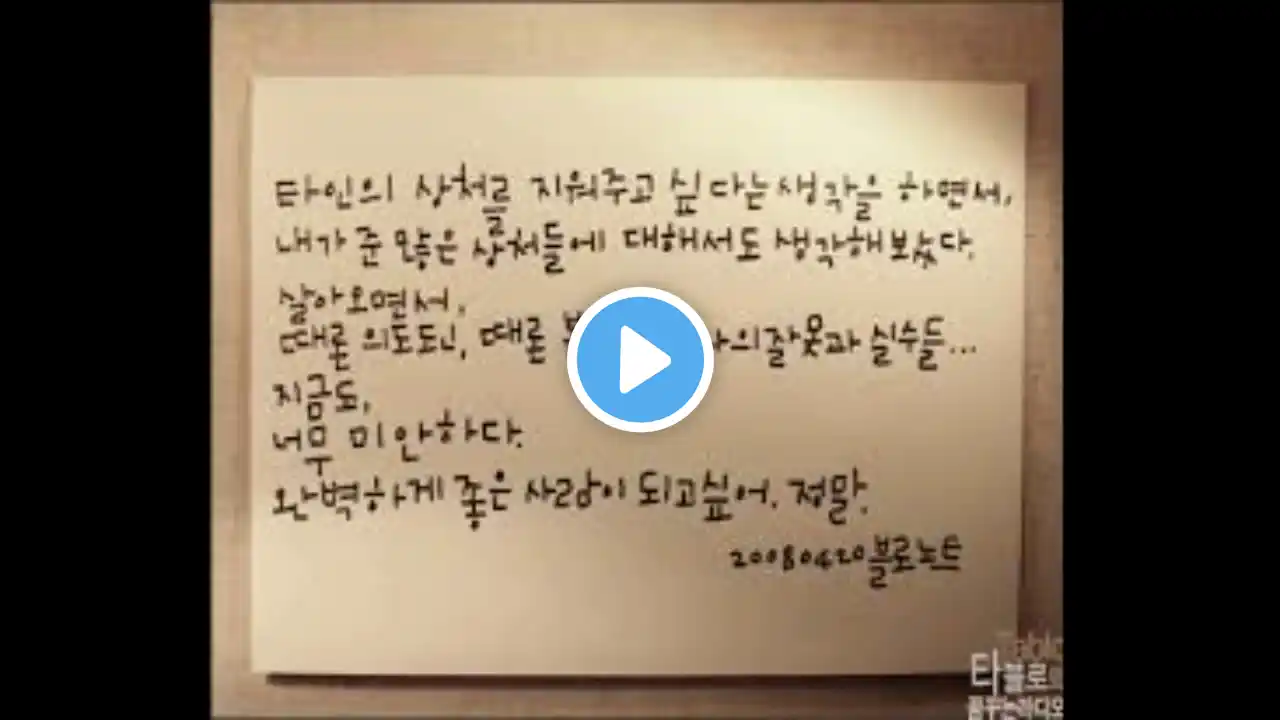 타인의 상처를 지워주고 싶다는 생각을 하면서,
내가 준 많은 상처들에 대해서도 생각해보았다.
살아오면서,
때론 의도된, 때론 나의 잘못과 실수들...
지금도,
너무 미안하다.
완벽하게 좋은 사람이 되고싶어. 정말.
20080420 블로노트
Tablo
타블로
꿈꾸는라디오